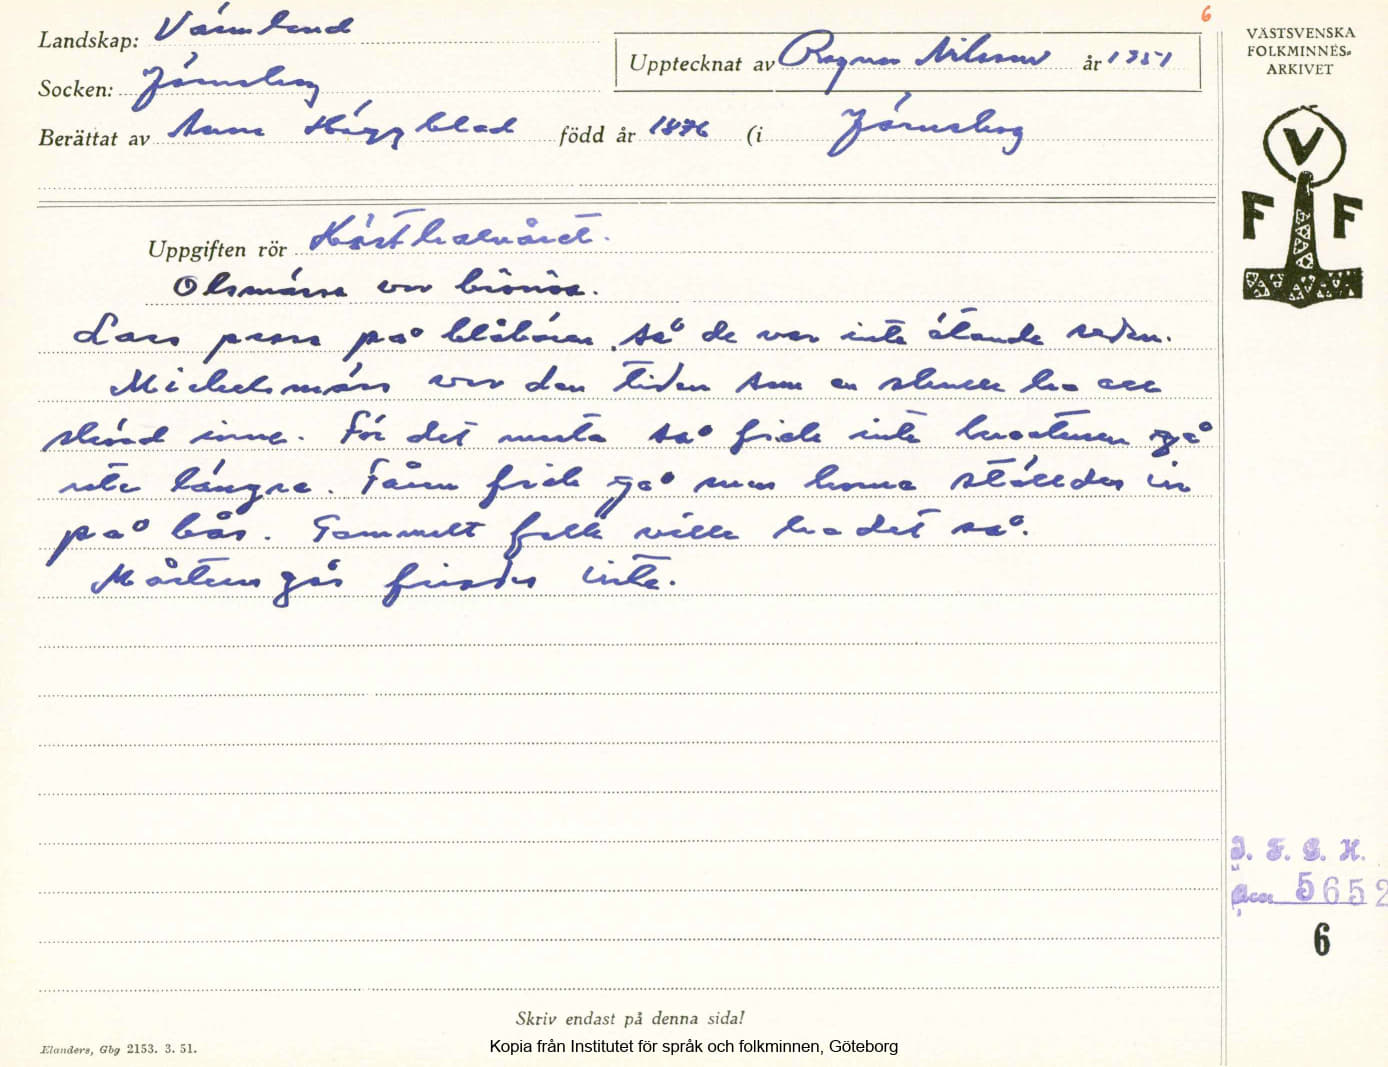 6
Landskap: Värmland
Upptecknat av Ragnar Nilsson år 1951
VÄSTSVENSKA
FOLKMINNES-
ARKIVET
Socken: Järnskog
Berättat av Anna Häggblad född år 1876 (i Järnskog
V
F F
Uppgiften rör Hösthalvåret.
Olsmässa var
Lars piss på blåbären, så de var inte ätande sedan.
Mickelsmäss var den tiden som en skulle ha all
skörd inne. För det mesta så fick inte kreaturen gå
ute längre. Fåren fick gå men korna ställdes in
på bås. Gammalt folk ville ha det så.
Mårtens gås firades inte.
I. F. G. H.
Acc 5652
6
Skriv endast på denna sida!
Elanders, Gbg 2153. 3. 51.
Kopia från Institutet för språk och folkminnen, Göteborg